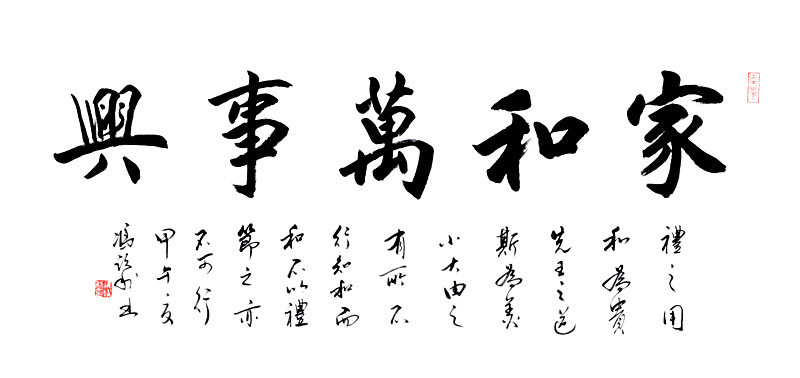 家和萬事興
禮之用
和為貴
先王之道
斯為美
小大由之
有所不
行知和而
和不以禮
節之亦
不可行
甲午夏